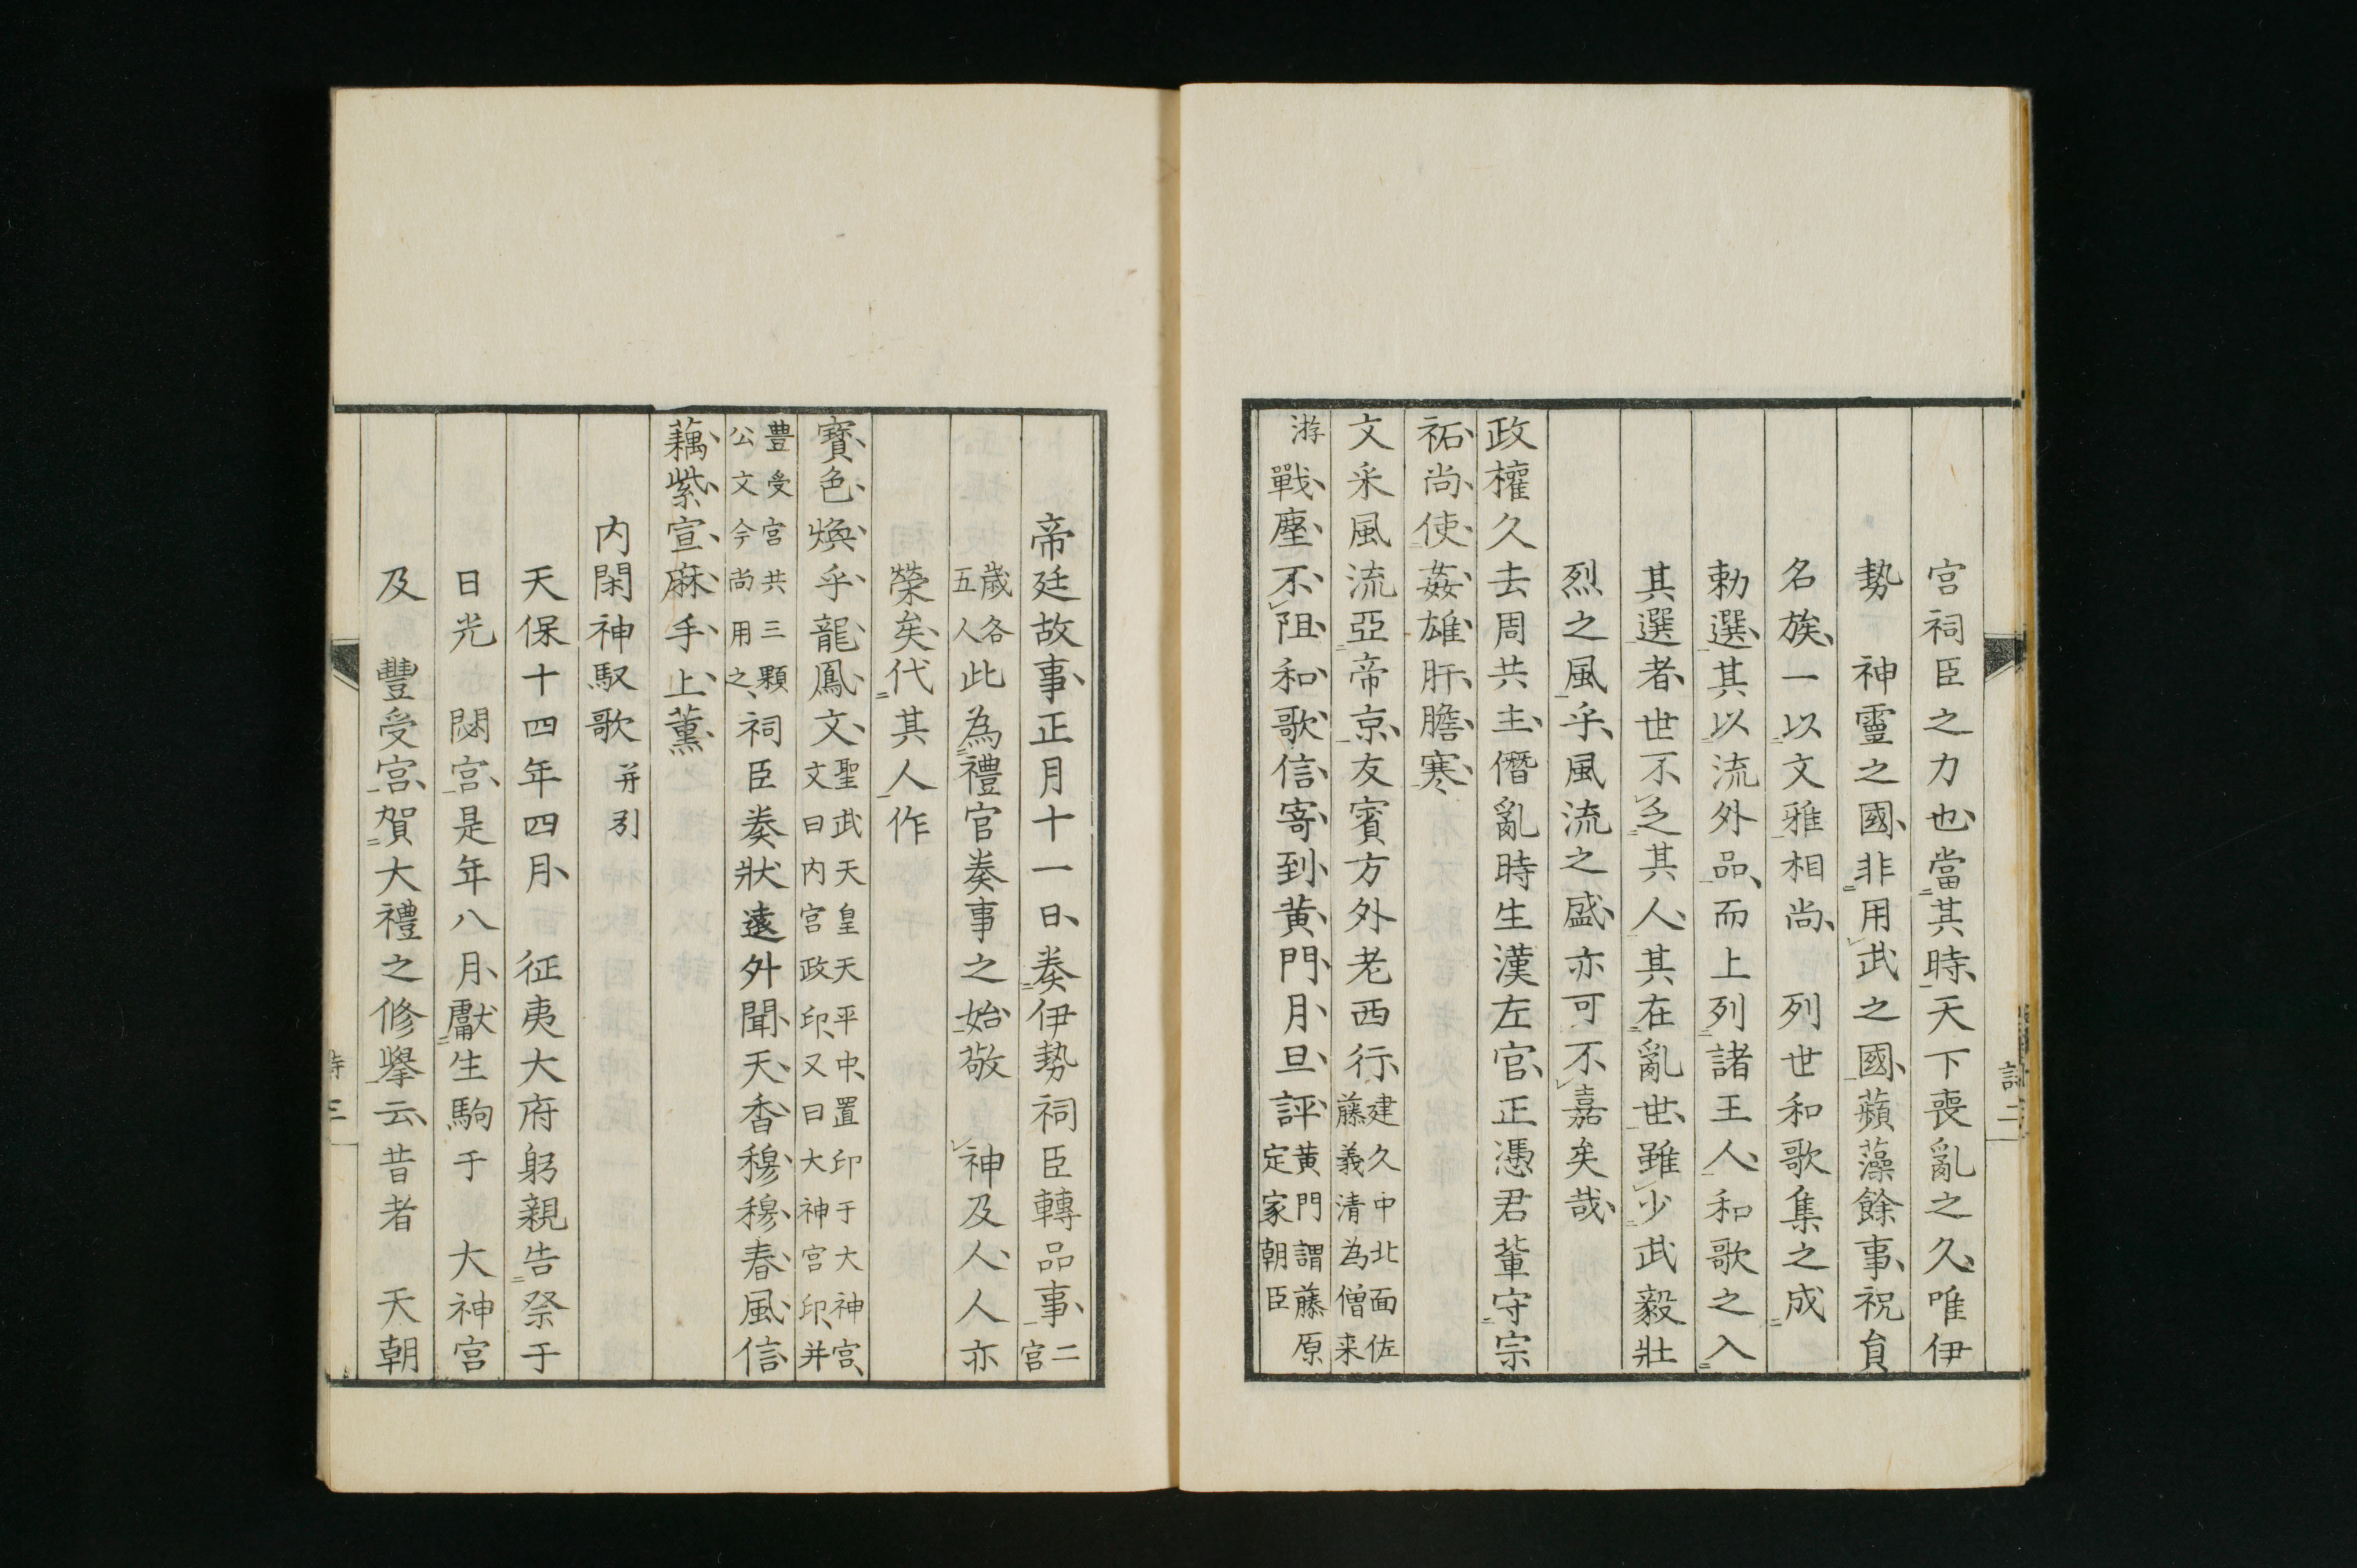 宮祠臣之力也當其時天下喪亂之久唯伊
勢　神靈之國非用武之國蘋藻餘事祝貟
名族一以文雅相尚　列世和歌集之成
勅選其以流外品而上列諸王人和歌之入
其選者世不乏其人其在亂世雖少武毅壯
烈之風乎風流之盛亦可不嘉矣哉
政權久去周共主僭亂時生漢左官正憑君輩守宗
祏尚使姦雄肝膽寒
文采風流亞帝京友賓方外老西行建久中北面佐
藤義清為僧来
游戰塵不阻和歌信寄到黄門月旦評黄門謂藤原
定家朝臣
詩二
帝廷故事正月十一日奏伊勢祠臣轉品事二
宮
歳各
五人此為禮官奏事之始敬　神及人人亦
榮矣代其人作
寶色煥乎龍鳳文聖武天皇天平中置印于大神宮
文曰内宮政印又曰大神宮印并
豊受宮共三顆
公文今尚用之祠臣奏狀遠外聞天香穆穆春風信
藕紫宣麻手上薫
内閑神馭歌并引
天保十四年四月　征夷大府躬親告祭于
日光　閟宮是年八月獻生駒于　大神宮
及　豐受宮賀大禮之修擧云昔者　天朝
三